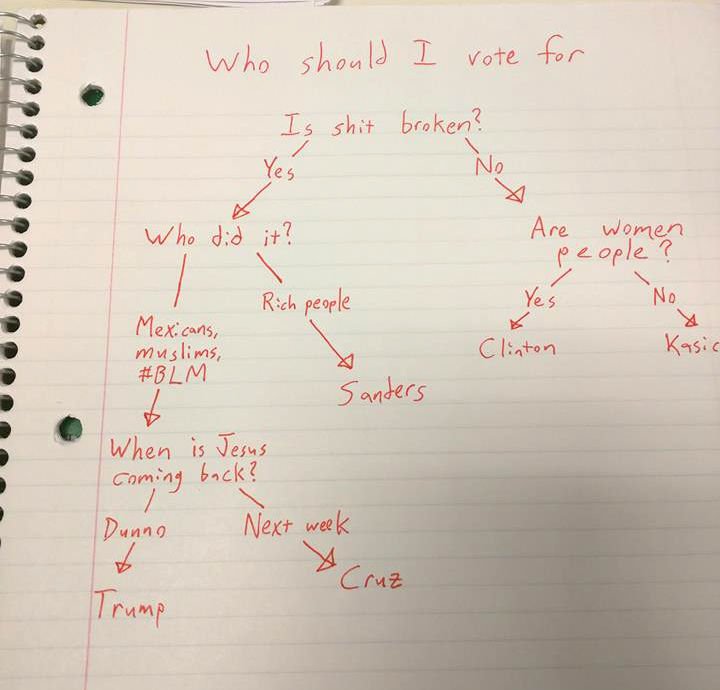 Who should I vote for
Is shit broken?
Yes
No
Who did it?
Are women
people?
Rich people
Yes
No
Mexicans,
muslims,
#BLM
Clinton
Kasic
Sanders
When is Jesus
coming back?
Dunno
Next week
Cruz
Trump